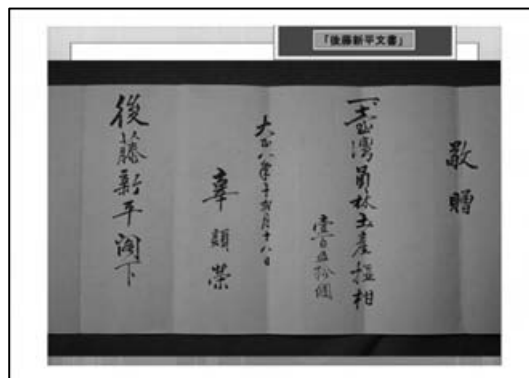 「後藤新平文書」
敬贈
一臺灣員林土產椪柑
壹百五拾個
大正八年十弍月十八日
辜顯榮
後藤新平閣下